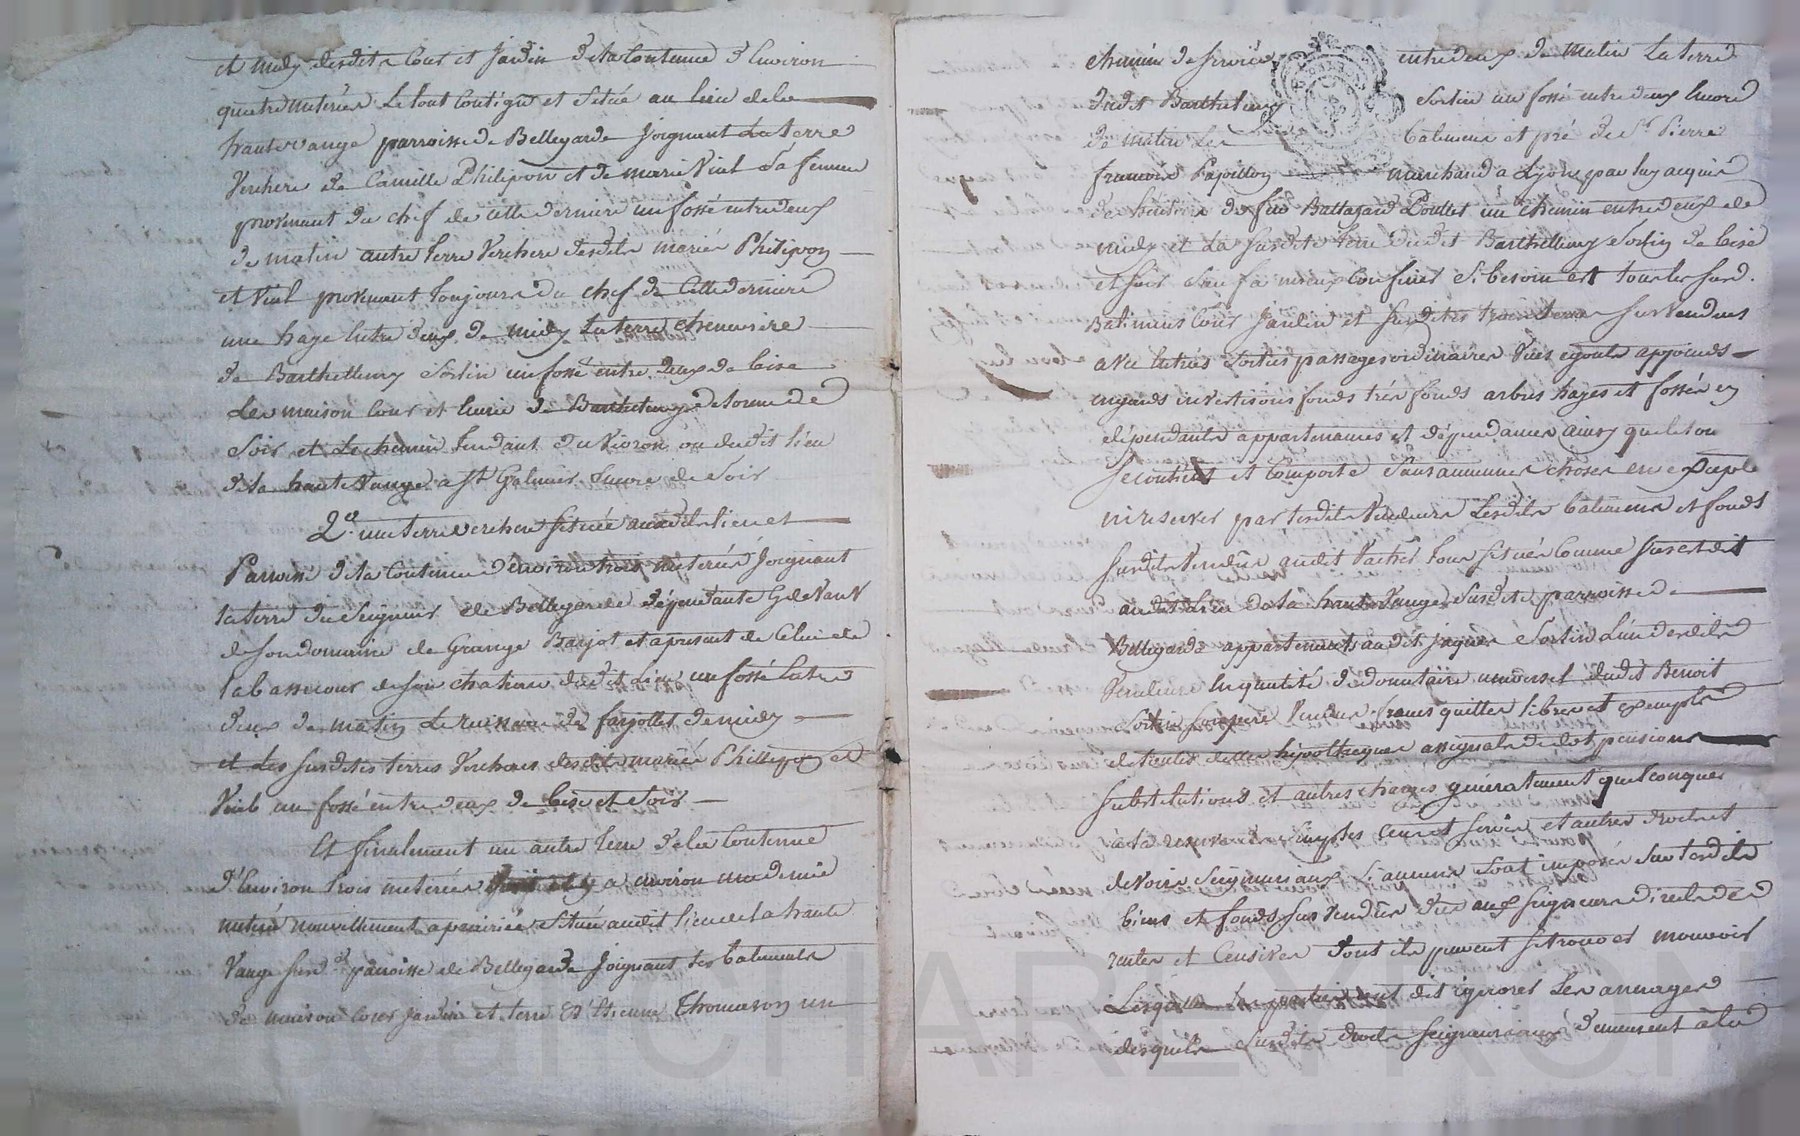 et midy desdits Cour et Jardin de la Contenue d'Environ
quatre meterées Le tout Contigu et Situé au lieu de la
haute vange parroisse de Bellegarde Joignant La terre
Verchere de Camille Philipon et de marie Vial Sa femme
provenant du chef de cette derniere un fossé entredeux
de matin autre terre Verchere desdits mariés Philipon
et Vial provenant toujours du chef de Cette derniere
une haye Entre deux de midy La terre cheneviere
de Barthellemy Sortin un fossé entre deux de bise
Les maison Cour et de Barthelemy de
Soir et Le chemin Tendant du Vioron ou dudit lieu
de la haute Vange a St Galmier Encore de Soir
2°. une terre verchere Située auxdits lieu et
Parroisse de la Contenue d'environ trois meterées Joignant
la terre du Seigneur de Bellegarde dépendante
de Son domaine de Grange Barjot et apresent de Celui de
la bassecour de Son chateau dudit Lieu un fossé Entre
deux de matin Le ruisseau de farjollet de midy
et Les Susdites terres Verchere desdits mariés Philippon et
Vial un fossé entre deux de bise et Soir
Et finalement un autre terre de la Contenue
d'Environ trois meterées y a environ une demie
meterée nouvellement apreiriée Située audit lieu de la haute
Vange Susd.e paroisse de Bellegarde Joignant Les batiments
de maison Cour Jardin et terre d'Etienne Thomason un
chemin de Service entredeux de matin La terre
dudit Barthelemy Sortin un fossé entre deux Encore
de matin Les batiments et pré de Sr Pierre
francois Papillon marchand a Lyon par luy acquis
des heritiers de feu Baltazard Poullet un chemin entredeux de
midy et La Susdite terre dudit Barthellemy Sortin de bise
et Soir Sauf a mieux Confiner Si besoin est tous les Susd.
Batiments Cour Jardin et Susdites trois terres Sus Vendues
avec Entrées Sorties passages ordinaires Vües egouts appends
regards investisons fonds trés fonds arbres hayes et fossés en
dépendants appartenances et dépendances ainsy que le tout
Se Contient et Comporte Sans aucunes choses en excepter
ni reserver par lesdits Vendeurs Lesdits batiments et fonds
Susdits Vendus audit Vachet Tous Situés Comme Sus est dit
audit Lieu de La haute Vange Susdite parroisse de
Bellegarde appartenants audit Jaques Sortin L'un desdits
Vendeurs En qualité de donataire universel dudit Benoit
Sortin Son pere Vendus francs quittes libres et exempts
de toutes dettes hipotheques assignats de dot pensions
Substitutions et autres charges généralement quelconques
à la reserve des Simples Cens et Servis et autres droits et
devoirs Seigneuriaux Si aucuns Sont imposés Sur lesdits
biens et fonds Sus Vendus due aux Seigneurs directs des
rentes et Censives dont ils peuvent Se trouver mouvoir
Lesquelles Les parties ont dit ignorer Les arrerages
desquels Susdits droits Seigneuriaux demeurent à la